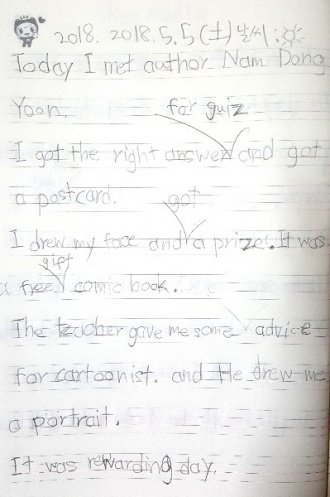 2018. 2018.5.5(土) 날씨:
Today I met author Nam Dong
Yoon.
for quiz
I got the right answer and got
a postcard.
got
I drew my face and a prize. It was
gift
a free comic book.
The teacher gave me some advice
for cartoonist. and He drew me
a portrait.
It was rewarding day.